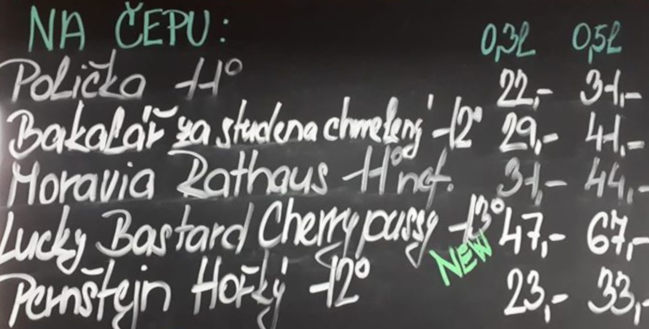 NA ČEPU: 0,3l 0,5l
Polička 11° 22,- 31,-
Bakalář za studena chmelený 12° 29,- 41,-
Moravia Rathaus 11° nef. 31,- 44,-
Lucky Bastard Cherry pussy 13° NEW 47,- 67,-
Pernštejn Hořký 12° 23,- 33,-